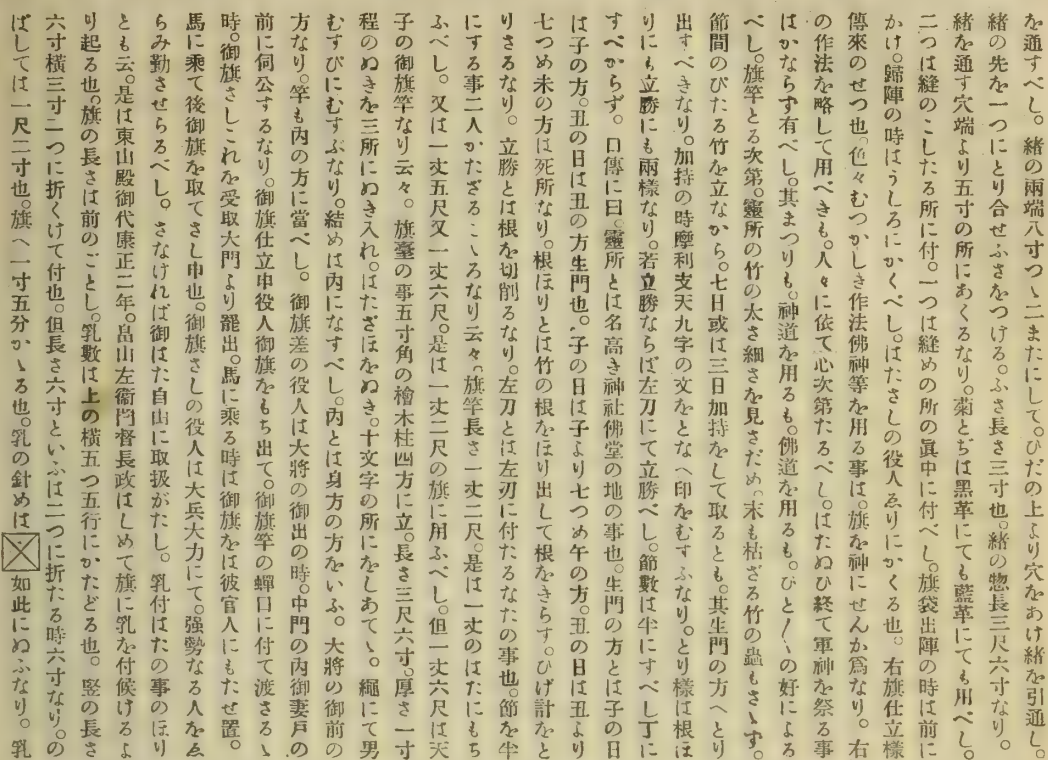 を通すべし。緒の兩端八寸つゝ二またにして。ひだの上より穴をあけ緒を引通し。
緒の先を一つにとり合せふさをつける。ふさ長さ三寸也。緒の惣長三尺六寸なり。
緒を通す穴端より五寸の所にあくるなり。菊とぢは黑革にても藍革にても用べし。
二つは縫のこしたる所に付。一つは縫めの所の眞中に付べし。旗袋出陣の時は前に
かけ。歸陣の時はうしろにかくべし。はたさしの役人ゑりにかくる也。右旗仕立樣
傳來のせつ也「色々むつかしき作法佛神等を用る事は。旗を神にせんか爲なり。右
の作法を略して用べきも。人々に依て心次第たるべし。はたぬひ終て軍神を祭る事
はかならず有べし。其まつりも。神道を用るも。佛道を用るも。ひと〳〵の好による
べし。旗竿とる次第。靈所の竹の太さ細さを見さだめ。末も枯ざる竹の蟲もさゝす。
節間のびたる竹を立なから。七日或は三日加持をして取るとも。其生門の方へとり
出すべきなり。加持の時摩利支天九字の文をとなへ印をむすふなり。とり樣は根ほ
りにも立勝にも兩樣なり。若立勝ならば左刀にて立勝べし。節數は半にすべし丁に
すべからず。口傳に曰。靈所とは名高き神社佛堂の地の事也。生門の方とは子の日
は子の方。丑の日は丑の方生門也。子の日は子より七つめ午の方。丑の日は丑より
七つめ未の方は死所なり。根ほりとは竹の根をほり出して根をきらす。ひげ計をと
りさるなり。立勝とは根を切削るなり。左刀とは左刃に付たるなたの事也。節を半
にする事二人かたざるこゝろなり云々。旗竿長さ一丈二尺。是は一丈のはたにもち
ふべし。又は一丈五尺又一丈六尺。是は一丈二尺の旗に用ふべし。但一丈六尺は天
子の御旗竿なり云々。旗臺の事五寸角の檜木柱四方に立。長さ三尺六寸。厚さ一寸
程のぬきを三所にぬき入れ。はたざほをぬき。十文字の所にをしあてゝ。繩にて男
むすびにむすぶなり。結めは内になすべし。内とは身方の方をいふ。大將の御前の
方なり。竿も内の方に當べし。御旗差の役人は大將の御出の時。中門の内御妻戸の
前に伺公するなり。御旗仕立申役人御旗をもち出て。御旗竿の蟬口に付て渡さるゝ
時。御旗さしこれを受取大門より罷出。馬に乘る時は御旗をは彼官人にもたせ置。
馬に乘て後御旗を取てさし申也。御旗さしの役人は大兵大力にて。强勢なる人をゑ
らみ勤させらるべし。さなければ御はた自由に取扱がたし。乳付はたの事のほり
とも云。是は東山殿御代康正二年。畠山左衞門督長政はしめて旗に乳を付候けるよ
り起る也。旗の長さは前のごとし。乳數は上の橫五つ五行にかたどる也。竪の長さ
六寸橫三寸二つに折くけて付也。但長さ六寸といふは二つに折たる時六寸なり。の
ばしては一尺二寸也。旗へ一寸五分かゝる也。乳の針めは 如此にぬふなり。乳